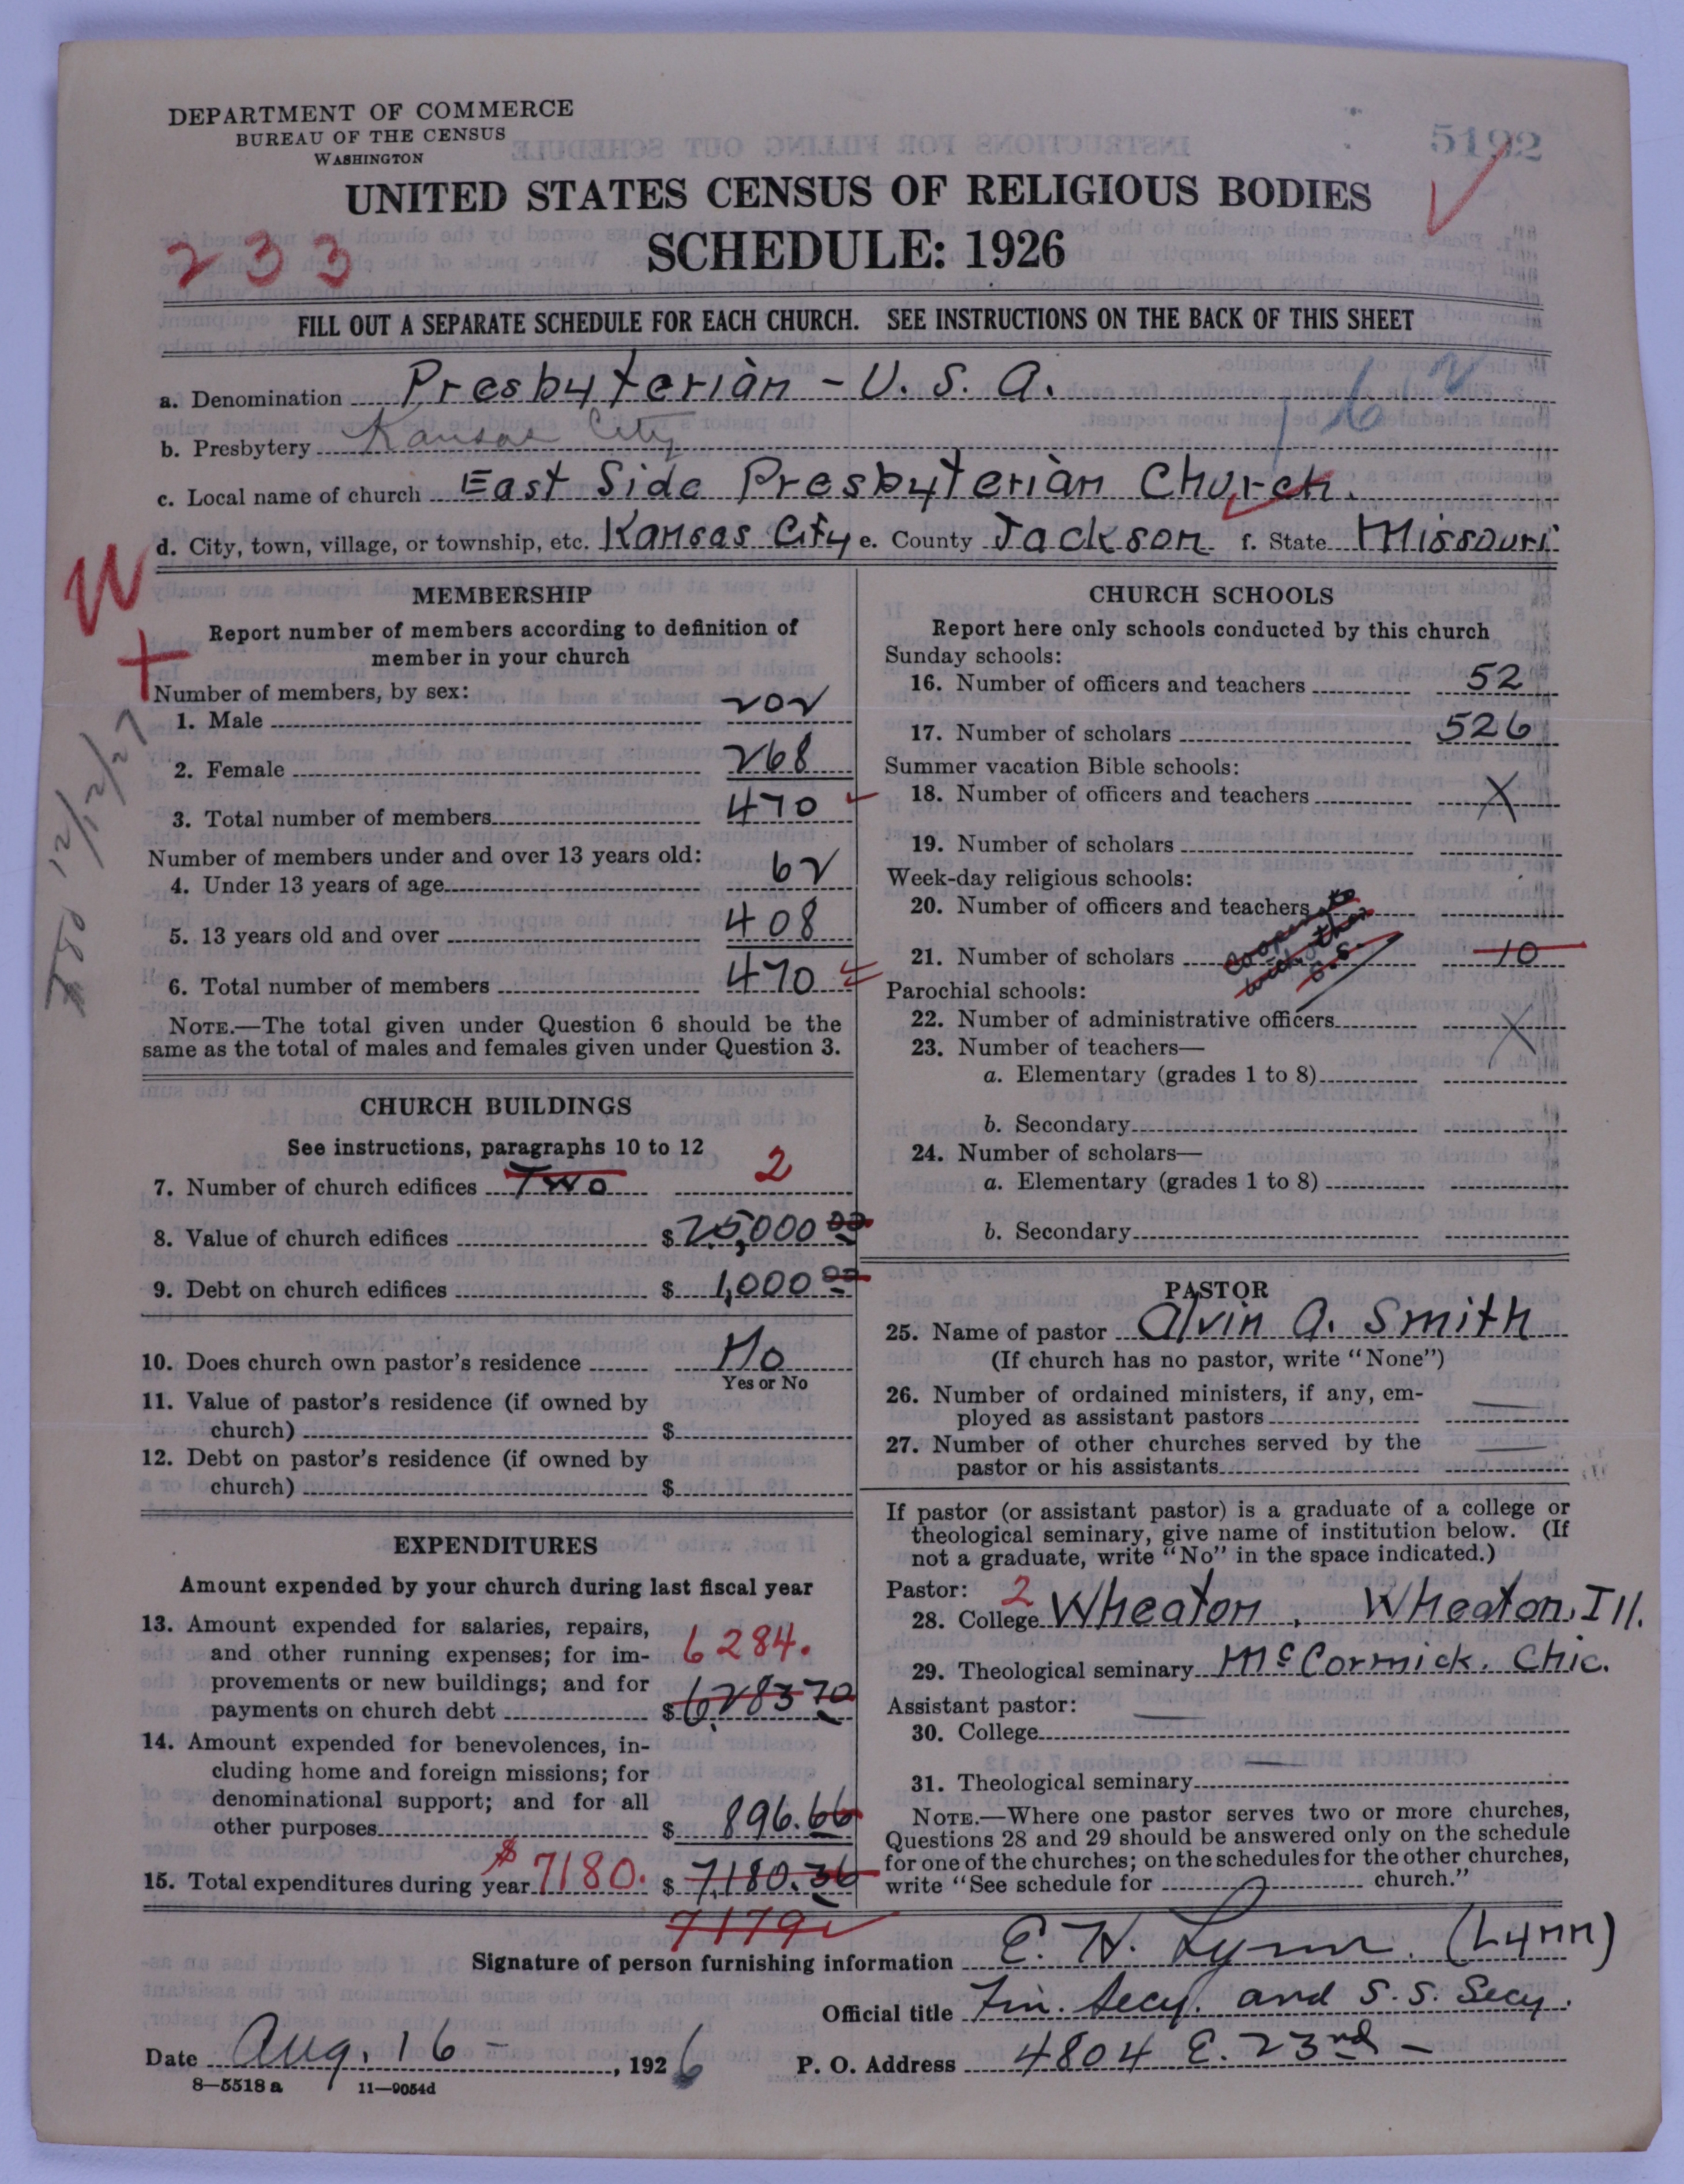 DEPARTMENT OF COMMERCE
BUREAU OF THE CENSUS
WASHINGTON
5192
UNITED STATES CENSUS OF RELIGIOUS BODIES
SCHEDULE: 1926
233
FILL OUT A SEPARATE SCHEDULE FOR EACH CHURCH. SEE INSTRUCTIONS ON THE BACK OF THIS SHEET
a. Denomination Presbyterian - U. S. A.
b. Presbytery Kansas City
c. Local name of church East Side Presbyterian Church.
d. City, town, village, or township, etc. Kansas City e. County Jackson f. State Missouri
W
+
12/12/27
MEMBERSHIP
Report number of members according to definition of
member in your church
Number of members, by sex:
1. Male 202
2. Female 268
3. Total number of members 470
Number of members under and over 13 years old:
4. Under 13 years of age 62
5. 13 years old and over 408
6. Total number of members 470
NOTE.—The total given under Question 6 should be the
same as the total of males and females given under Question 3.
CHURCH BUILDINGS
See instructions, paragraphs 10 to 12
7. Number of church edifices Two 2
8. Value of church edifices $ 25,000 00
9. Debt on church edifices $ 1,000 00
10. Does church own pastor's residence No
Yes or No
11. Value of pastor's residence (if owned by
church) $
12. Debt on pastor's residence (if owned by
church) $
EXPENDITURES
Amount expended by your church during last fiscal year
13. Amount expended for salaries, repairs,
and other running expenses; for im-
6284.
provements or new buildings; and for
payments on church debt $ 6283 70
14. Amount expended for benevolences, in-
cluding home and foreign missions; for
denominational support; and for all
other purposes $ 896.66
15. Total expenditures during year $ 7180. $ 7,180.36
7179
CHURCH SCHOOLS
Report here only schools conducted by this church
Sunday schools:
16. Number of officers and teachers 52
17. Number of scholars 526
Summer vacation Bible schools:
18. Number of officers and teachers X
19. Number of scholars
Week-day religious schools:
20. Number of officers and teachers
21. Number of scholars 10
Parochial schools:
22. Number of administrative officers X
23. Number of teachers—
a. Elementary (grades 1 to 8)
b. Secondary
24. Number of scholars—
a. Elementary (grades 1 to 8)
b. Secondary
PASTOR
25. Name of pastor Alvin A. Smith
(If church has no pastor, write "None")
26. Number of ordained ministers, if any, em-
ployed as assistant pastors —
27. Number of other churches served by the
pastor or his assistants —
If pastor (or assistant pastor) is a graduate of a college or
theological seminary, give name of institution below. (If
not a graduate, write "No" in the space indicated.)
Pastor: 2
28. College Wheaton, Wheaton, Ill.
29. Theological seminary McCormick. Chic.
Assistant pastor:
30. College —
31. Theological seminary —
NOTE.—Where one pastor serves two or more churches,
Questions 28 and 29 should be answered only on the schedule
for one of the churches; on the schedules for the other churches,
write "See schedule for church."
Signature of person furnishing information E. H. Lynn. (Lynn)
Official title Fin. Secy. and S. S. Secy.
Date Aug. 16 - , 1926
P. O. Address 4804 E. 23rd -
8—5518 a 11—9054d